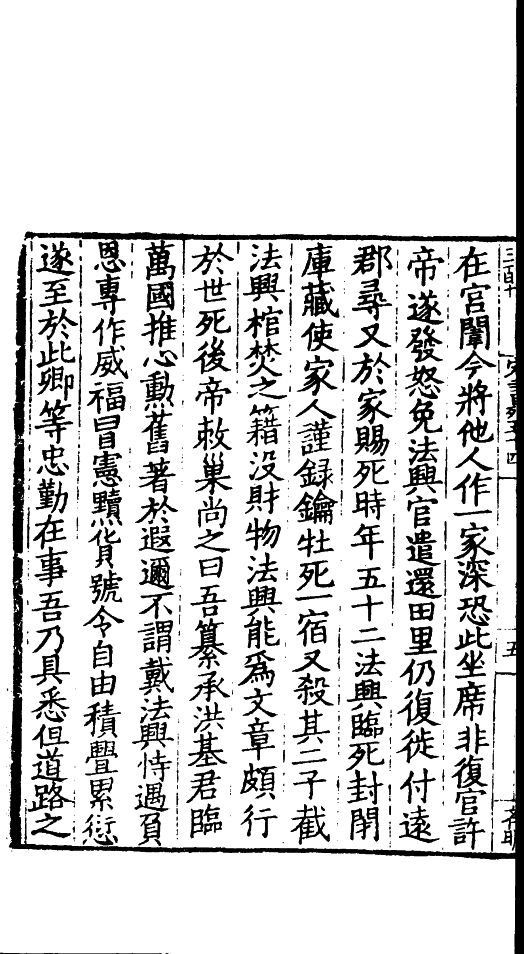 在宫闈今將他人作一家深恐此坐席非復官許
帝遂發怒免法興官遣還田里仍復徙付遠
郡尋又於家賜死時年五十二法興臨死封閉
庫藏使家人謹録鑰牡死一宿又殺其二子截
法興棺焚之籍没財物法興能爲文章頗行
於世死後帝敕巢尚之曰吾纂承洪基君臨
萬國推心勲舊著於遐邇不謂戴法興恃遇負
恩專作威福冒憲黷貨號令自由積舋累愆
遂至於此卿等忠勤在事吾乃具悉但道路之